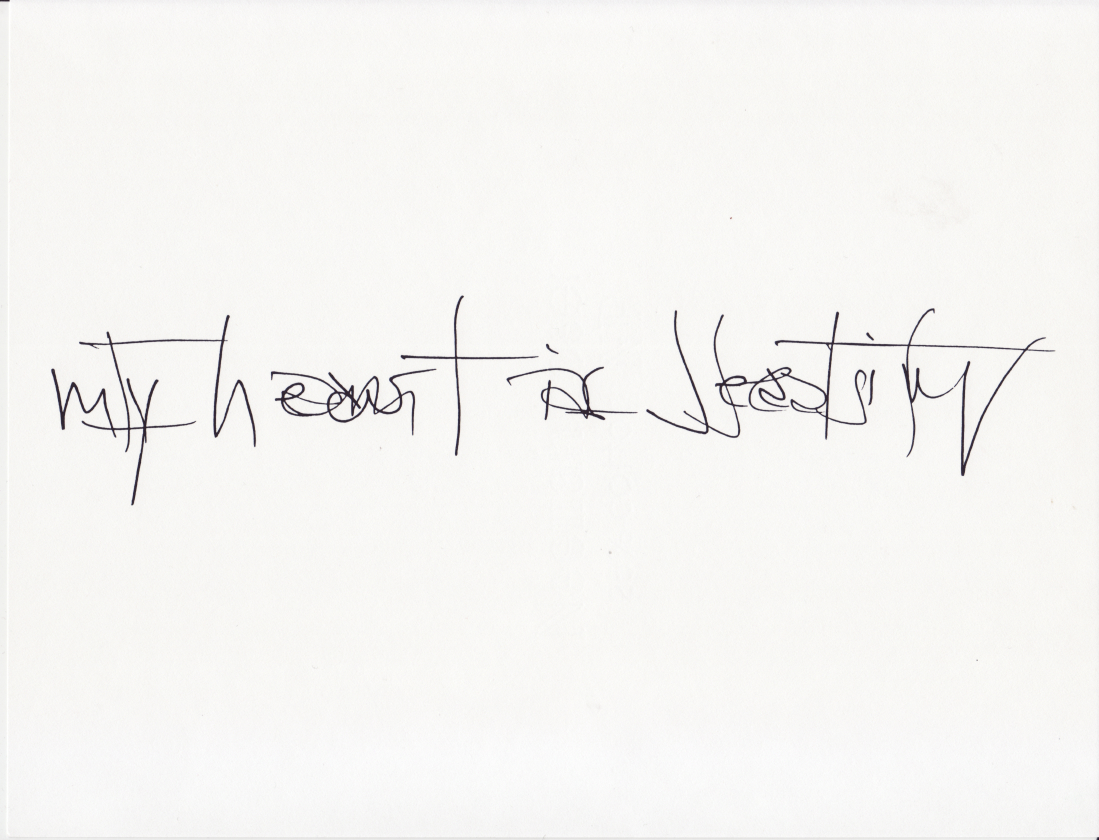 my heart is